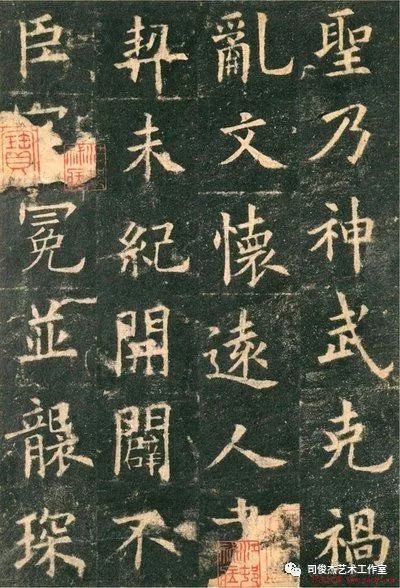 聖乃神武克禍
亂文懷遠人
契未紀開闢不
臣冕並襲琛
司俊杰艺术工作室